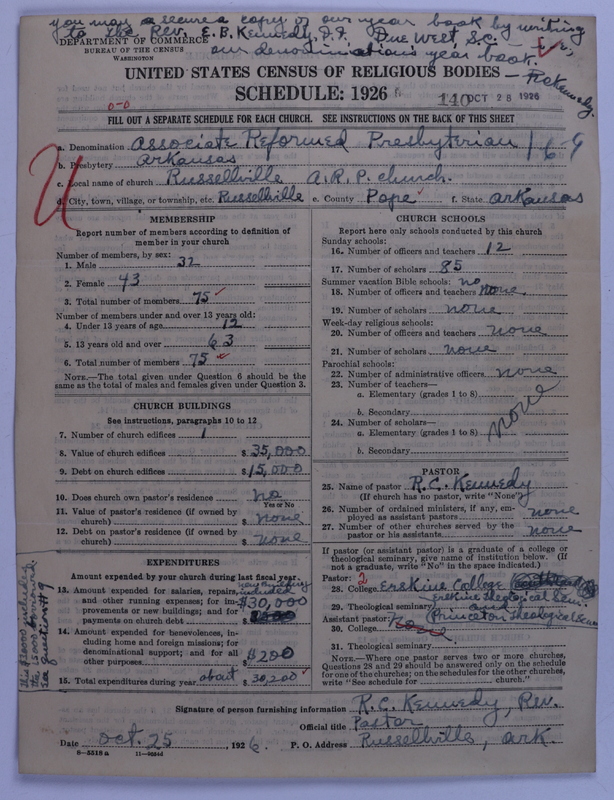 you may secure a copy of our year book by writing
to the Rev. E. B. Kennedy, D. D. Due West, S.C. —
our denomination's year book. — R C Kennedy.
DEPARTMENT OF COMMERCE
BUREAU OF THE CENSUS
WASHINGTON
UNITED STATES CENSUS OF RELIGIOUS BODIES
SCHEDULE: 1926
0-0
140 OCT 28 1926
FILL OUT A SEPARATE SCHEDULE FOR EACH CHURCH. SEE INSTRUCTIONS ON THE BACK OF THIS SHEET
a. Denomination Associate Reformed Presbyterian 1 6-9
b. Presbytery Arkansas
c. Local name of church Russellville A.R.P. church.
d. City, town, village, or township, etc. Russellville e. County Pope f. State Arkansas
MEMBERSHIP
Report number of members according to definition of
member in your church
Number of members, by sex:
1. Male 32
2. Female 43
3. Total number of members 75
Number of members under and over 13 years old:
4. Under 13 years of age 12
5. 13 years old and over 63
6. Total number of members 75
NOTE.—The total given under Question 6 should be the
same as the total of males and females given under Question 3.
CHURCH BUILDINGS
See instructions, paragraphs 10 to 12
7. Number of church edifices 1
8. Value of church edifices $ 35,000
9. Debt on church edifices $ 15,000
10. Does church own pastor's residence no
Yes or No
11. Value of pastor's residence (if owned by
church) $ none
12. Debt on pastor's residence (if owned by
church) $ none
EXPENDITURES
Amount expended by your church during last fiscal year.
13. Amount expended for salaries, repairs,
and other running expenses; for im-
provements or new buildings; and for
payments on church debt
included
$30,000
14. Amount expended for benevolences, in-
cluding home and foreign missions; for
denominational support; and for all
other purposes $200
15. Total expenditures during year about $ 30,200
this $30000 includes
the 15000 borrowed.
See Question # 9
CHURCH SCHOOLS
Report here only schools conducted by this church
Sunday schools:
16. Number of officers and teachers 12
17. Number of scholars 85
Summer vacation Bible schools: no
18. Number of officers and teachers none
19. Number of scholars none
Week-day religious schools:
20. Number of officers and teachers none
21. Number of scholars none
Parochial schools:
22. Number of administrative officers none
23. Number of teachers—
a. Elementary (grades 1 to 8)
b. Secondary
none
24. Number of scholars—
a. Elementary (grades 1 to 8)
b. Secondary
PASTOR
25. Name of pastor R. C. Kennedy
(If church has no pastor, write "None")
26. Number of ordained ministers, if any, em-
ployed as assistant pastors none
27. Number of other churches served by the
pastor or his assistants none
If pastor (or assistant pastor) is a graduate of a college or
theological seminary, give name of institution below. (If
not a graduate, write "No" in the space indicated.)
Pastor: 2
28. College Erskine College
Erskine Theological Sem.
29. Theological seminary and
Assistant pastor: (Princeton Theological Sem
30. College none
31. Theological seminary
NOTE.—Where one pastor serves two or more churches,
Questions 28 and 29 should be answered only on the schedule
for one of the churches; on the schedules for the other churches,
write "See schedule for church."
Signature of person furnishing information R. C. Kennedy, Rev.
Official title Pastor
Date Oct. 25, 1926. P. O. Address Russellville, Ark.
8-5518 a